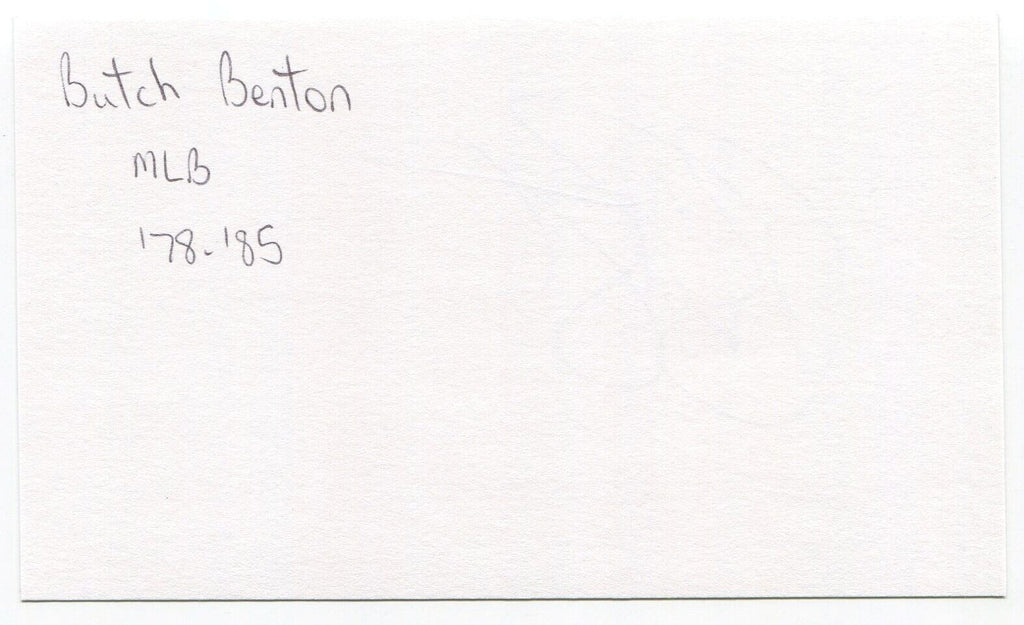 Butch Benton
MLB
'78-'85